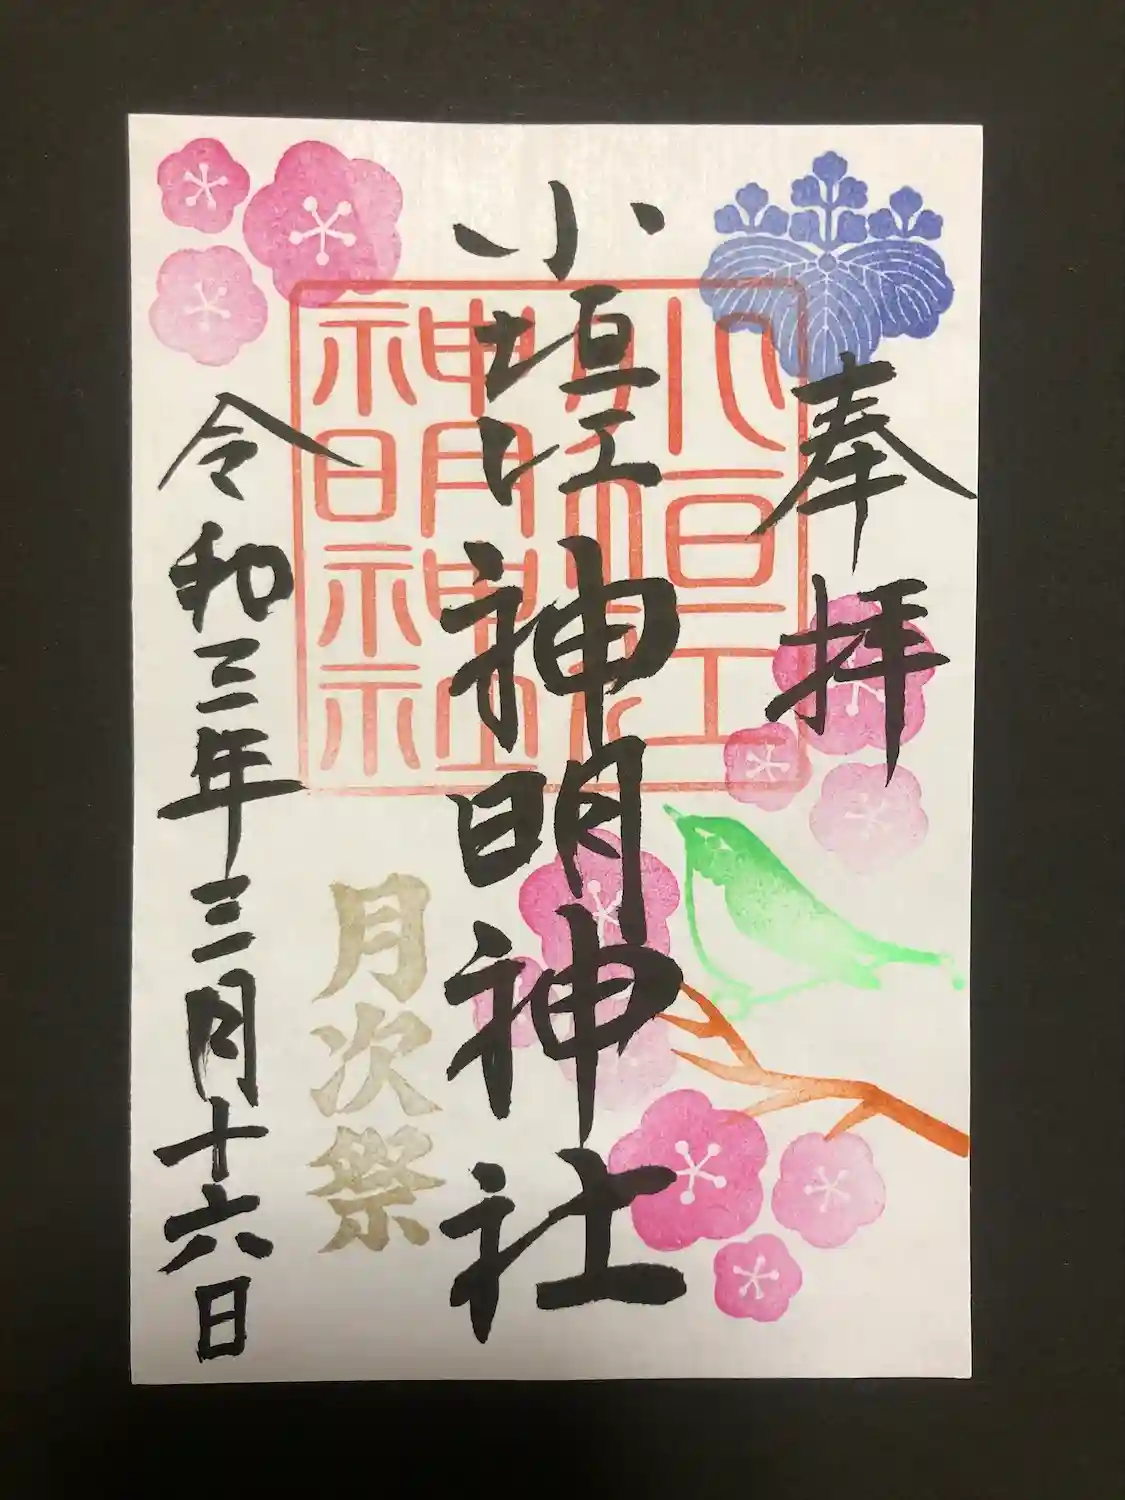 奉拝
小垣江神明神社
小垣江
神明神社
月次祭
令和三年三月十六日